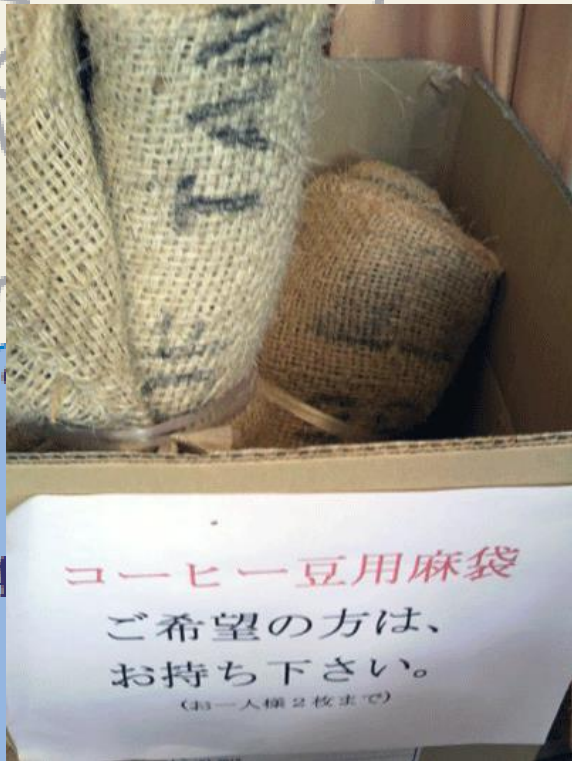 TAN
コーヒー豆用麻袋
ご希望の方は、
お持ち下さい。
(お一人様2枚まで)